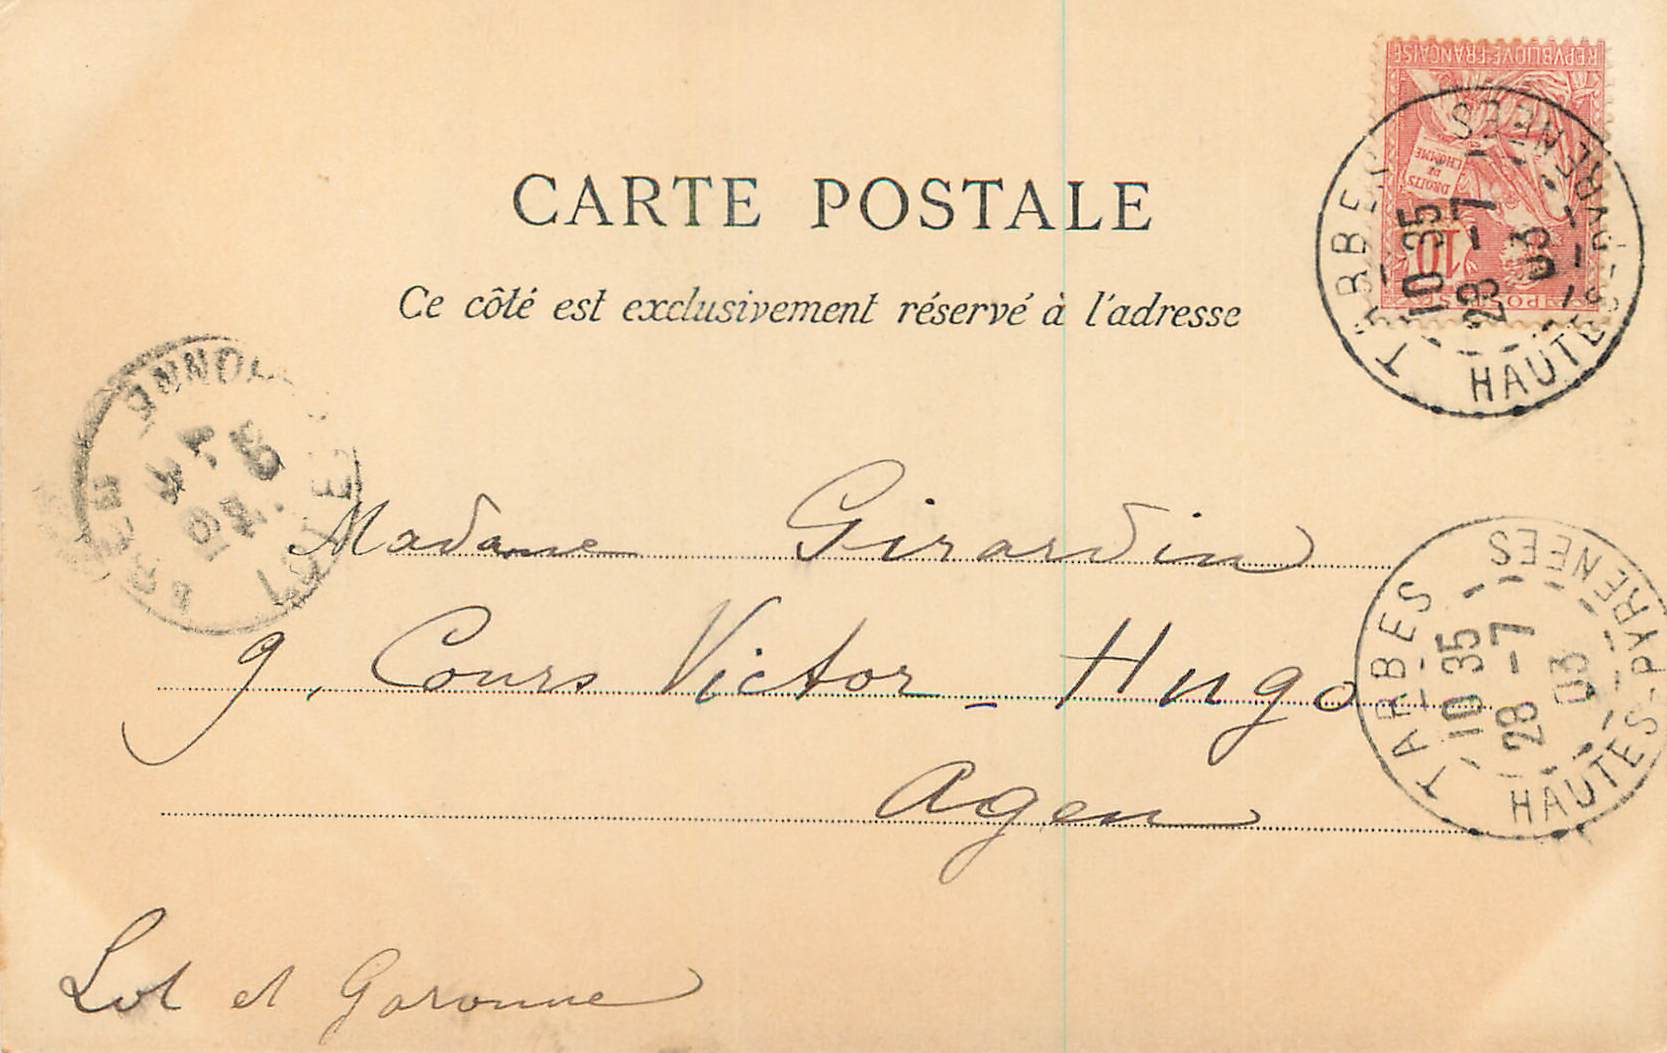 REPVBLIQVE FRANÇAISE
DROITS
DE
L'HOMME
10
POSTES
TARBES
10 35
28 - 7
03
HAUTES-PYRENEES
CARTE POSTALE
Ce côté est exclusivement réservé à l'adresse
LOT-ET-GARONNE
Madame Girardin
9, Cours Victor-Hugo
Agen
Lot et Garonne
TARBES
10 35
28 - 7
03
HAUTES-PYRENEES